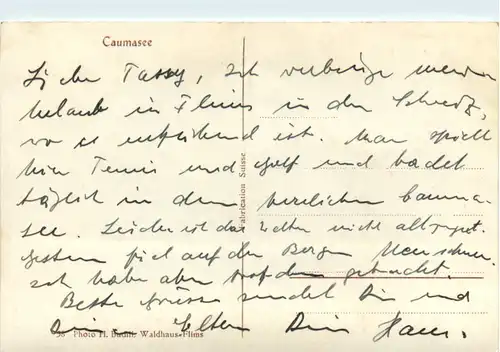 Caumasee
Liebe Tassy, Ich verbringe meinen
Urlaub in Flims in der Schweiz,
wo es entzückend ist. Man spielt
hier Tennis und Golf und badet
täglich in dem herrlichen Cauma-
see. Leider ist das Wetter nicht allzu gut.
Gestern fiel auf den Bergen Neuschnee.
Ich habe aber trotzdem gebadet.
Beste Grüsse sendet Dir und
Deinen Eltern Dein Hans.
Photo H. Waldhaus-Flims
Fabrication Suisse